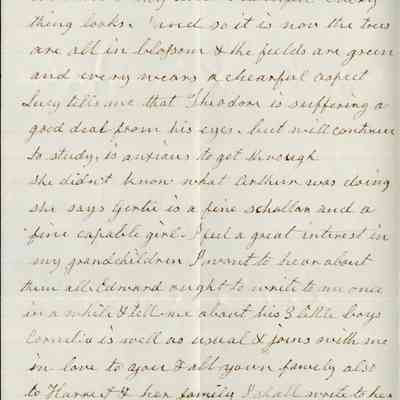 thing looks. And so it is now the trees
are all in blossom & the fields are green
and every wears a chearful aspect
Lucy tells me that Theodore is suffering a
good deal from his eyes. but will continue
to study, is anxious to get through
she didn't know what Arthur was doing
she says Gertie is a fine schollar and a
fine capable girl. I feel a great interest in
my grandchildren I want to hear about
them all. Edward ought to write to me once
in a while & tell me about his 3 little boys
Cornelia is well as usual & joins with me
in love to you & all your family also
to Harriet & her family I shall write to her